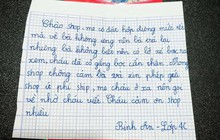 Chào shop, mẹ có đặt hộp đựng mứt tết
mà về bà không ưng nên bà trả lại
nhưng bà không biết nên có lỡ xé bọc ra
xem, cháu đã cố gắng bọc cẩn thận. Mong
shop thông cảm bà và xin phép gửi
shop ít phí ship, mẹ cháu ở xa nên gọi
về nhờ cháu viết. Cháu cảm ơn shop
nhiều
Bình An - Lớp 4C